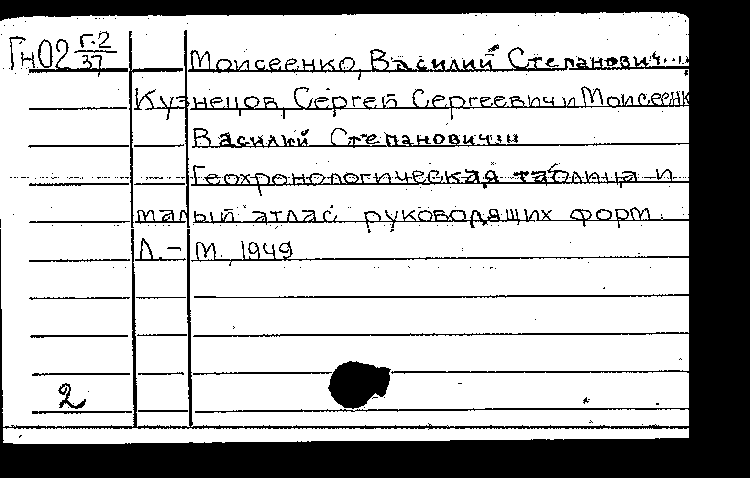 ГнО2 Г.2/37
Моисеенко, Василий Степанович
Кузнецов, Сергей Сергеевич и Моисеенк
Василий Степанович
Геохронологическая таблица и
малый атлас руководящих форм.
Л. – М., 1949
2